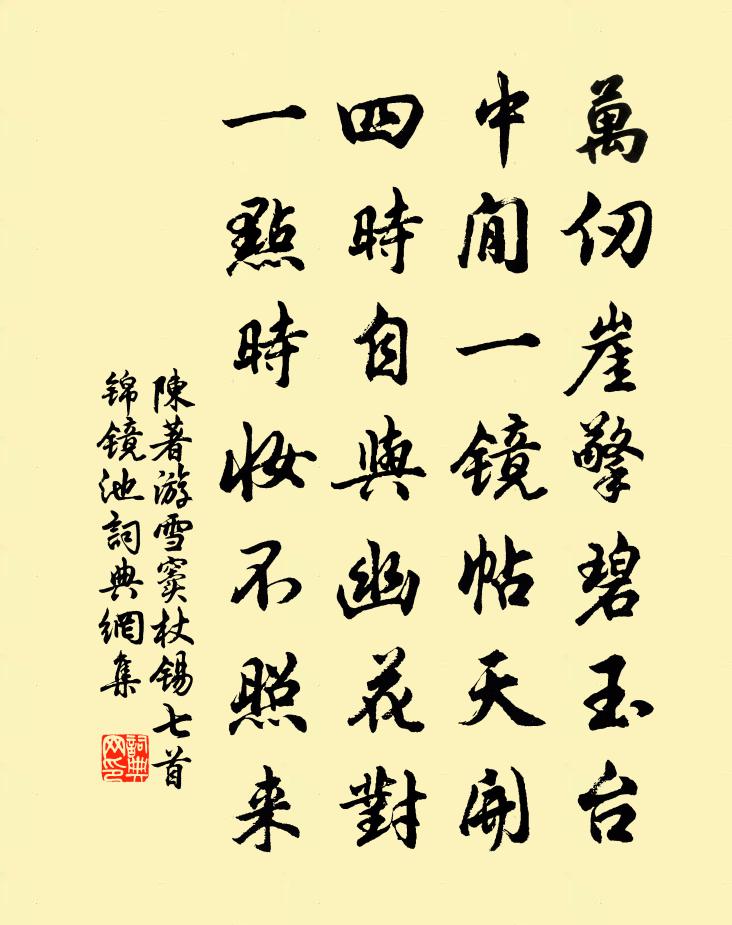 萬仞崖擎碧玉台
中間一镜帖天開
四時自與幽花對
一點時妆不照来
陳著游雪窦杖锡七首
锦镜池詞典網集
詞典网印